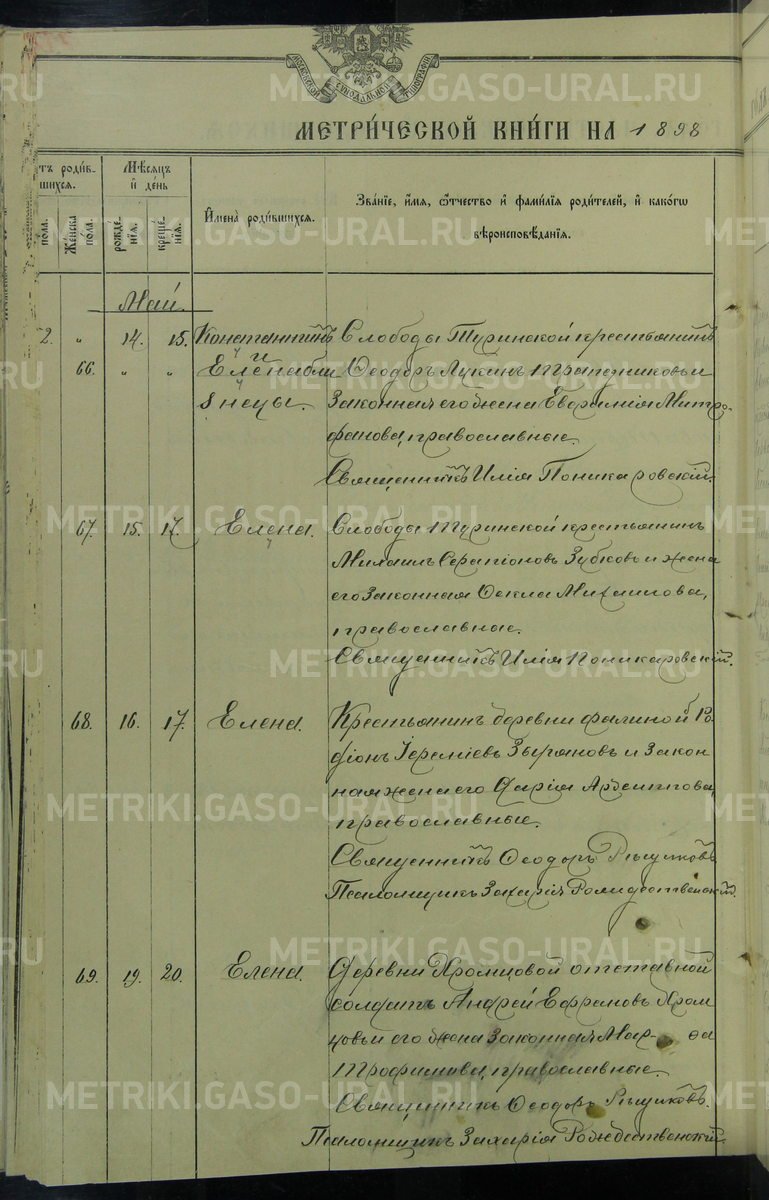 МЕТРИ́ЧЕСКОЙ КНИ́ГИ НА 1898
тъ роди́в-
шихся.
Мѣ́сяцъ
и҆ де́нь
пола.
Же́нска
по́ла.
рожде́-
нїя.
креще́-
нїя.
И҆мена̀ роди́вшихся.
Зва́нїе, и҆́мя, ѻ҆́тчество и҆ фами́лїя роди́телей, и҆ како́гѡ
вѣроисповѣ́данїя.
Май.
2. „ 14. 15. Константинъ Слободы Туринской крестьянинъ
и
66. „ „ Елена бли Ѳеодоръ Лукинъ Трапезниковъ и
знецы. законная его жена Евфалмія Митро-
фанова, православные.
Священникъ Илія Поникаровскій.
67. 15. 17. Елена. Слободы Туринской крестьянинъ
Михаилъ Серапіоновъ Зубковъ и жена
его законная Ѳекла Михаилова,
православные.
Священникъ Илія Поникаровскій.
68. 16. 17. Елена. Крестьянинъ деревни Фалиной Ро-
діонъ Іереміевъ Зыряновъ и закон
ная жена его Дарія
православные.
Священникъ Ѳеодоръ
Псаломщикъ Захарія Рождественскій.
69. 19. 20. Елена. Деревни Хромцовой отставной
солдатъ Андрей Ефремовъ Хром
цовъ и его жена законная Мар- ѳа
Трофимова, православные.
Священникъ Ѳеодоръ
Псаломщикъ Захарія Рождественскій
METRIKI.GASO-URAL.RU